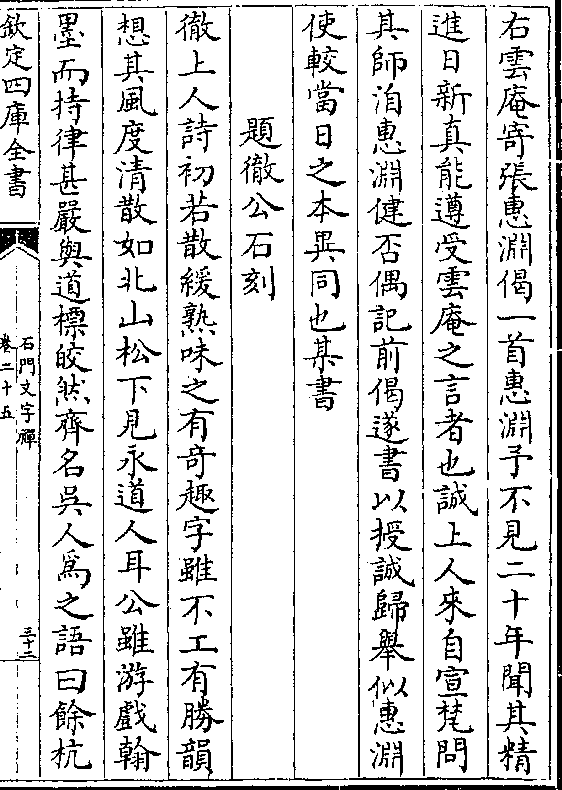 右雲庵寄張惠淵偈一首惠淵予不見二十年聞其精
進日新真能遵受雲庵之言者也誠上人來自宣梵問
其師洎惠淵健否偶記前偈遂書以授誠歸舉似惠淵
使較當日之本異同也某書
題徹公石刻
徹上人詩初若散緩熟味之有奇趣字雖不工有勝韻
想其風度清散如北山松下見永道人耳公雖游戲翰
墨而持律甚嚴與道標皎然齊名吳人為之語曰餘杭
欽定四庫全書
石門文字禪
卷二十五
三十二